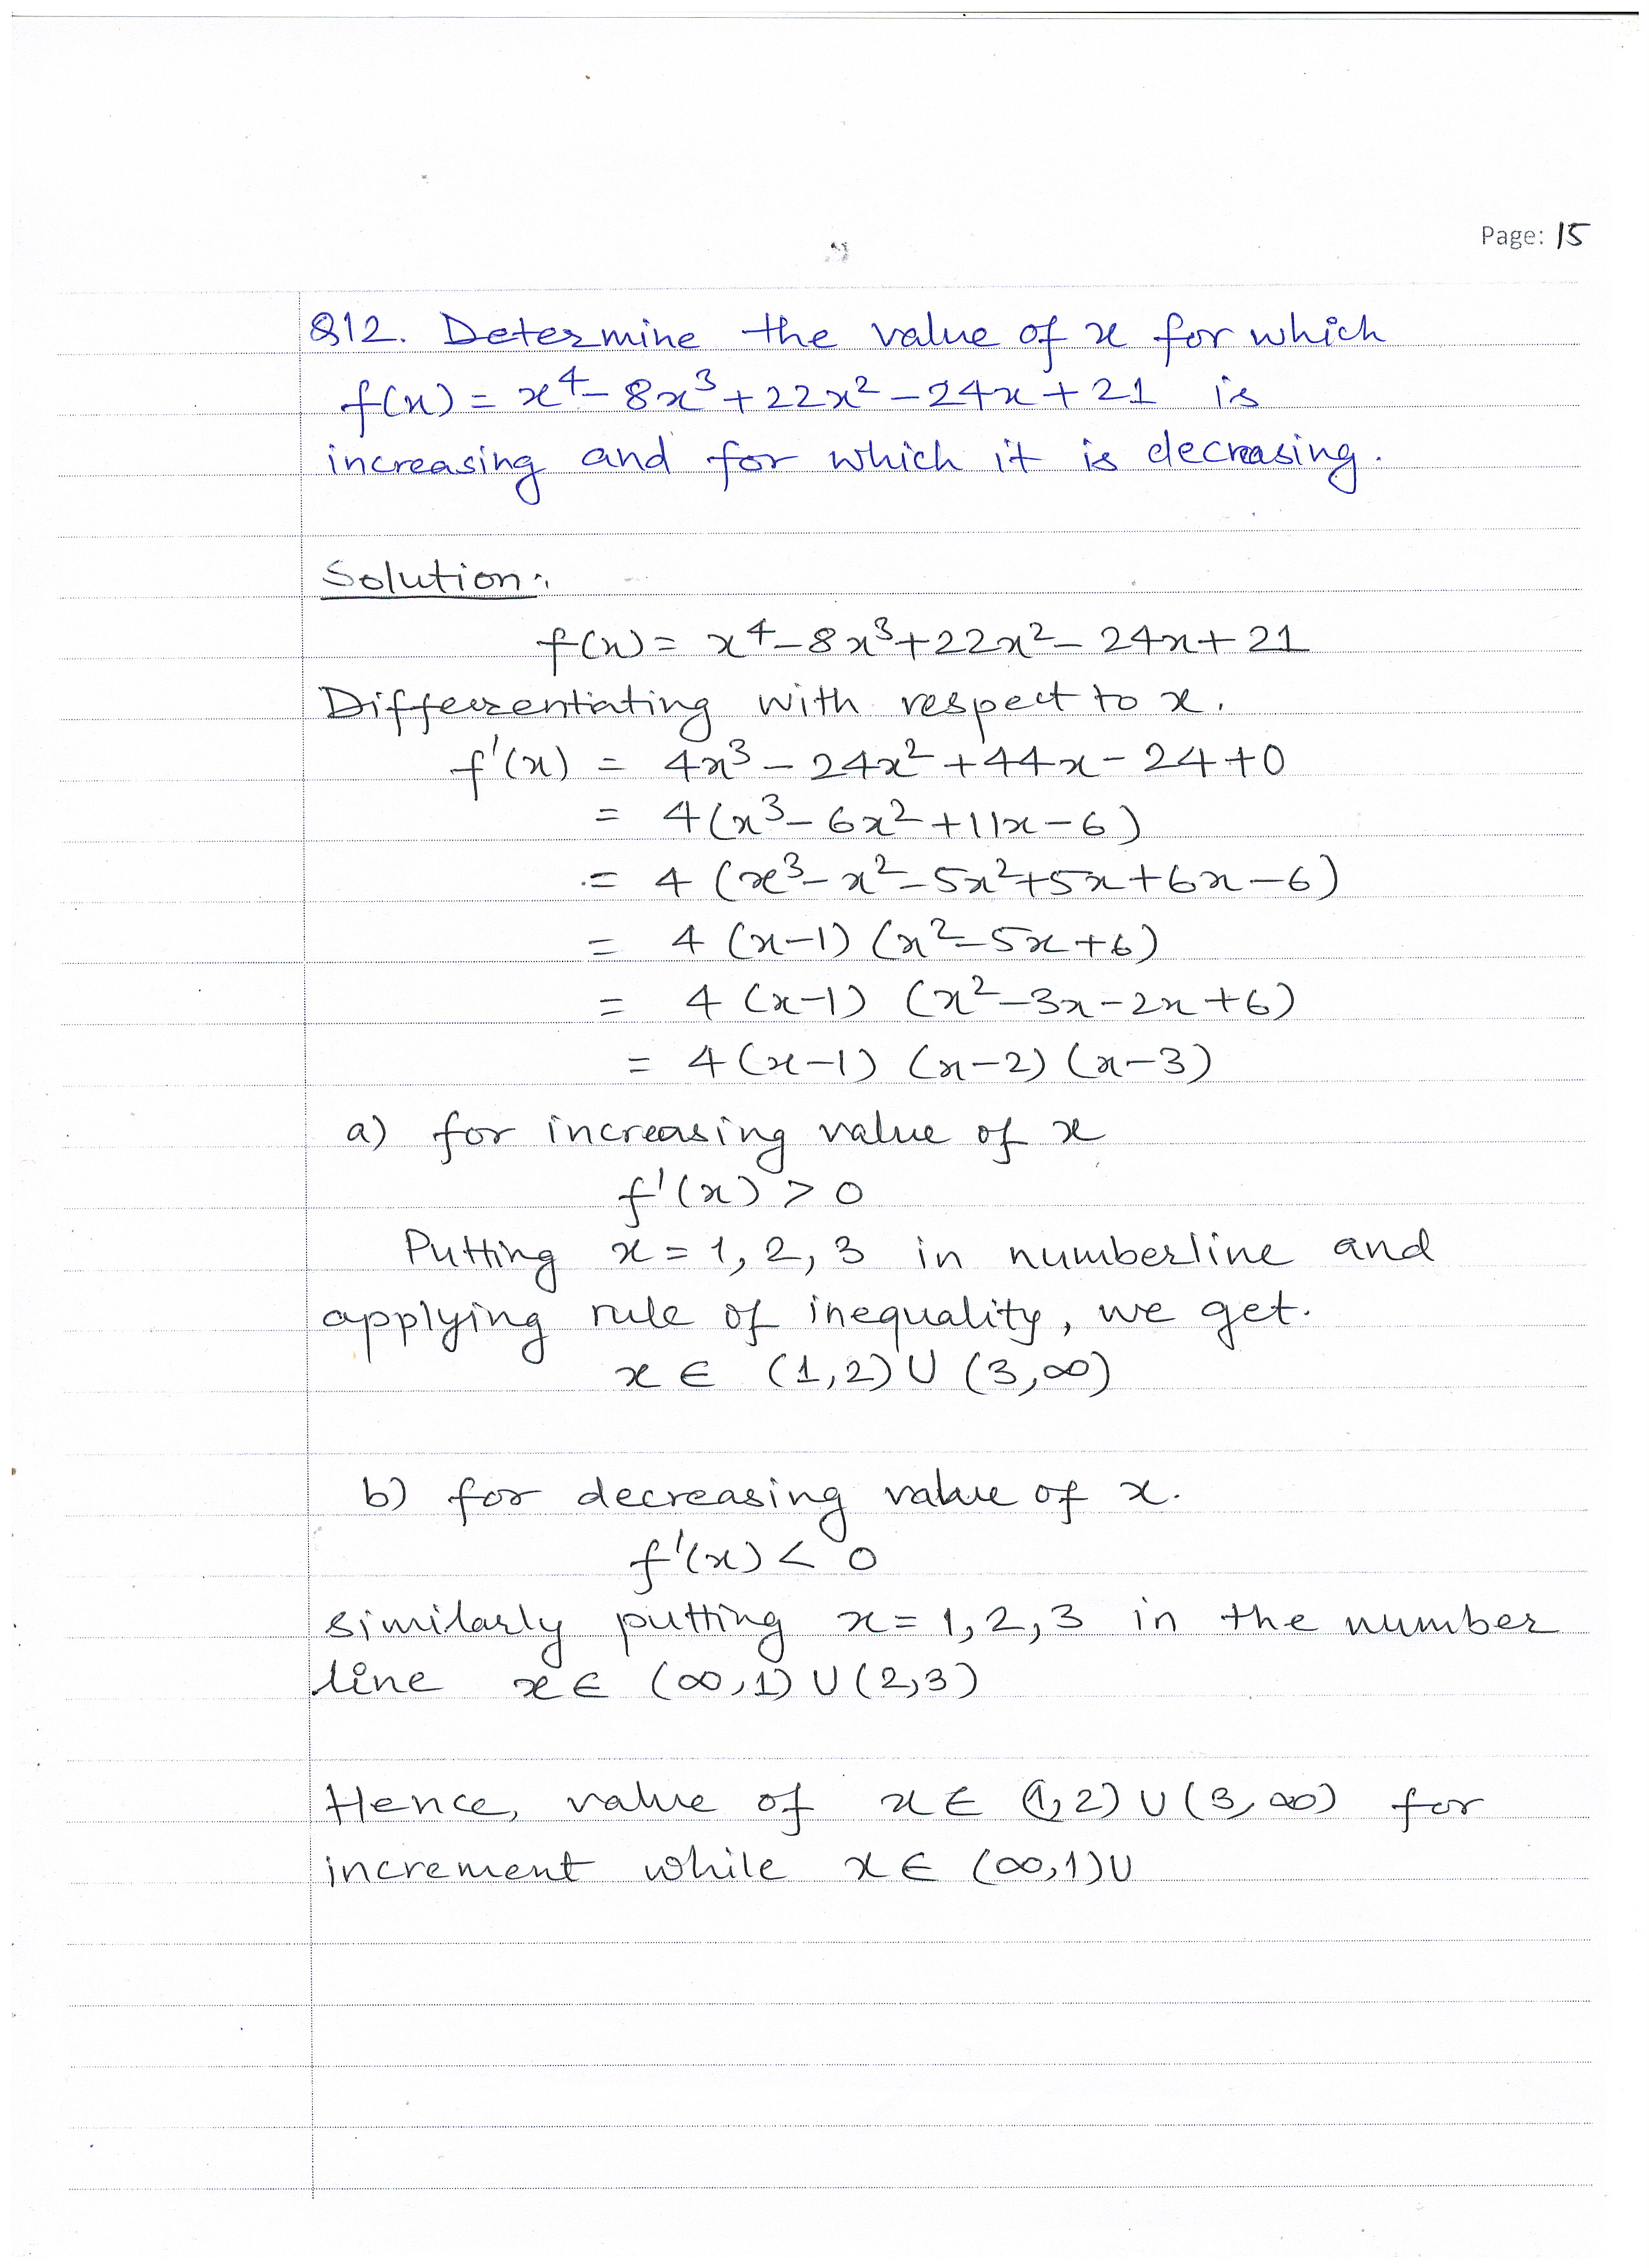 Page: 15
Q12. Determine the value of x for which
f(x) = x⁴ - 8x³ + 22x² - 24x + 21 is
increasing and for which it is decreasing.
Solution:
f(x) = x⁴ - 8x³ + 22x² - 24x + 21
Differentiating with respect to x.
f'(x) = 4x³ - 24x² + 44x - 24 + 0
= 4(x³ - 6x² + 11x - 6)
= 4 (x³ - x² - 5x² + 5x + 6x - 6)
= 4 (x-1) (x² - 5x + 6)
= 4 (x-1) (x² - 3x - 2x + 6)
= 4 (x-1) (x-2) (x-3)
a) for increasing value of x
f'(x) > 0
Putting x = 1, 2, 3 in numberline and
applying rule of inequality, we get.
x ∈ (1,2) ∪ (3,∞)
b) for decreasing value of x.
f'(x) < 0
similarly putting x = 1, 2, 3 in the number
line x ∈ (∞,1) ∪ (2,3)
Hence, value of x ∈ (1,2) ∪ (3,∞) for
increment while x ∈ (∞,1) ∪